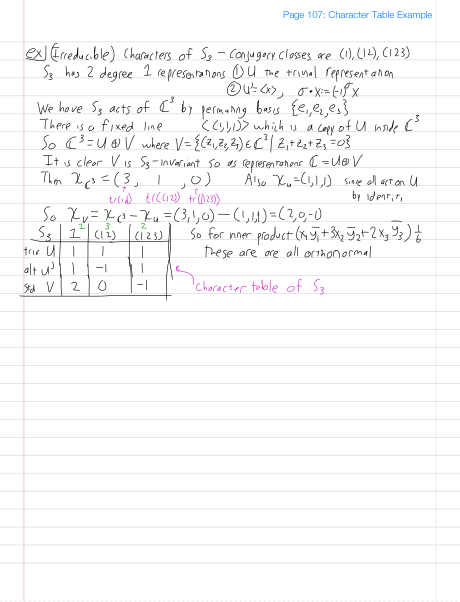 Page 107: Character Table Example
ex) (Irreducible) Characters of S₃ - Conjugacy classes are (1), (12), (123)
S₃ has 2 degree 1 representations ① U the trivial representation
② U' = <x>, σ·x = (-1)^σ x
We have S₃ acts of ℂ³ by permuting basis {e₁,e₂,e₃}
There is a fixed line <(1,1,1)> which is a copy of U inside ℂ³
So ℂ³ = U⊕V where V = {(z₁,z₂,z₃) ∈ ℂ³ | z₁+z₂+z₃ = 0}
It is clear V is S₃-invariant so as representations ℂ = U⊕V
Then χ_ℂ³ = (3, 1, 0) Also χ_U = (1,1,1) since all act on U
tr(id) tr((12)) tr((123)) by identity
So χ_V = χ_ℂ³ - χ_U = (3,1,0) - (1,1,1) = (2,0,-1)
S₃ 1 (12) (123) So for inner product (x₁ȳ₁+3x₂ȳ₂+2x₃ȳ₃) 1/6
triv U 1 1 1 these are are all orthonormal
alt U' 1 -1 1
std V 2 0 -1 Character table of S₃